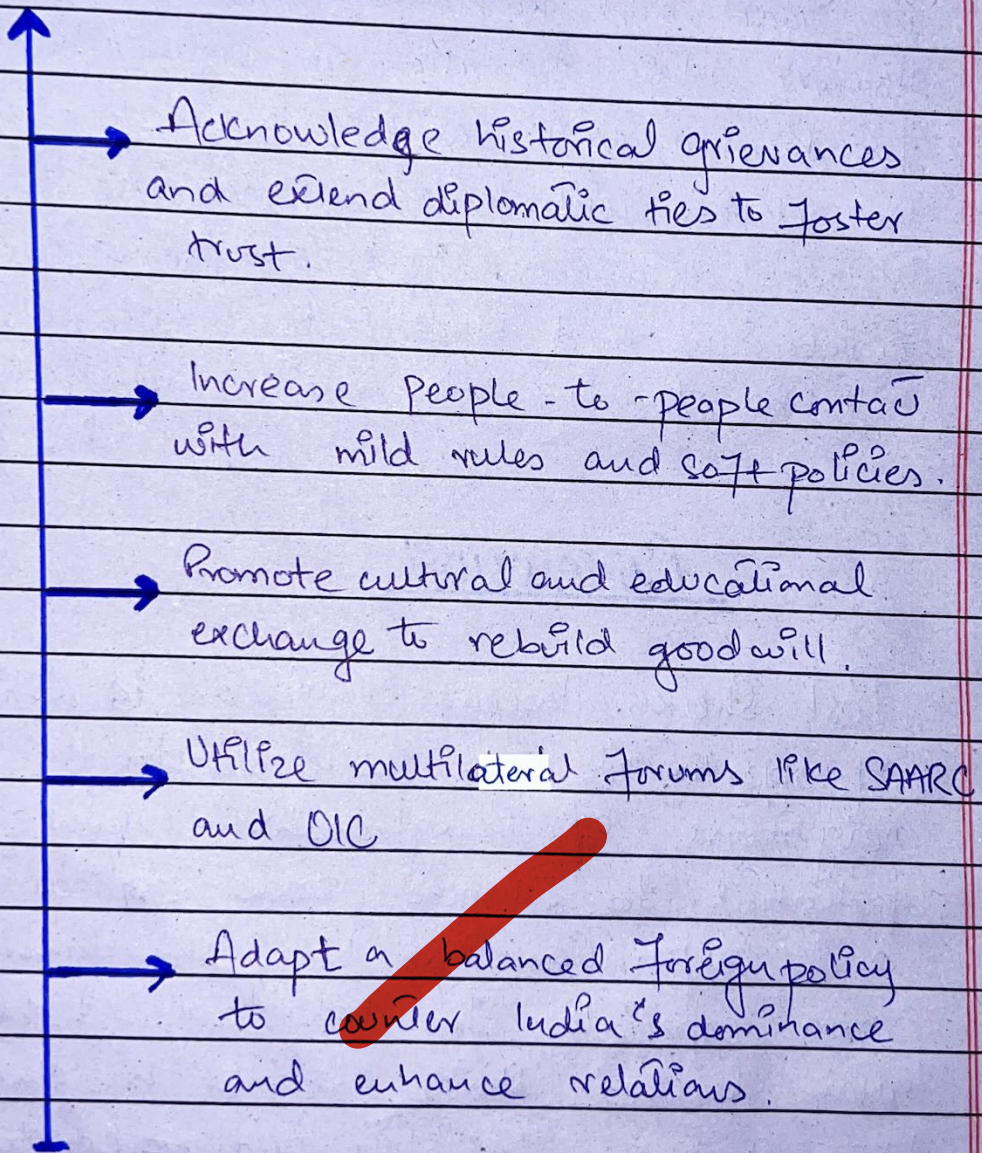 Acknowledge historical grievances
and extend diplomatic ties to foster
trust.
Increase people-to-people contact
with mild rules and soft policies.
Promote cultural and educational
exchange to rebuild goodwill.
Utilize multilateral forums like SAARC
and OIC
Adapt a balanced foreign policy
to counter India's dominance
and enhance relations.